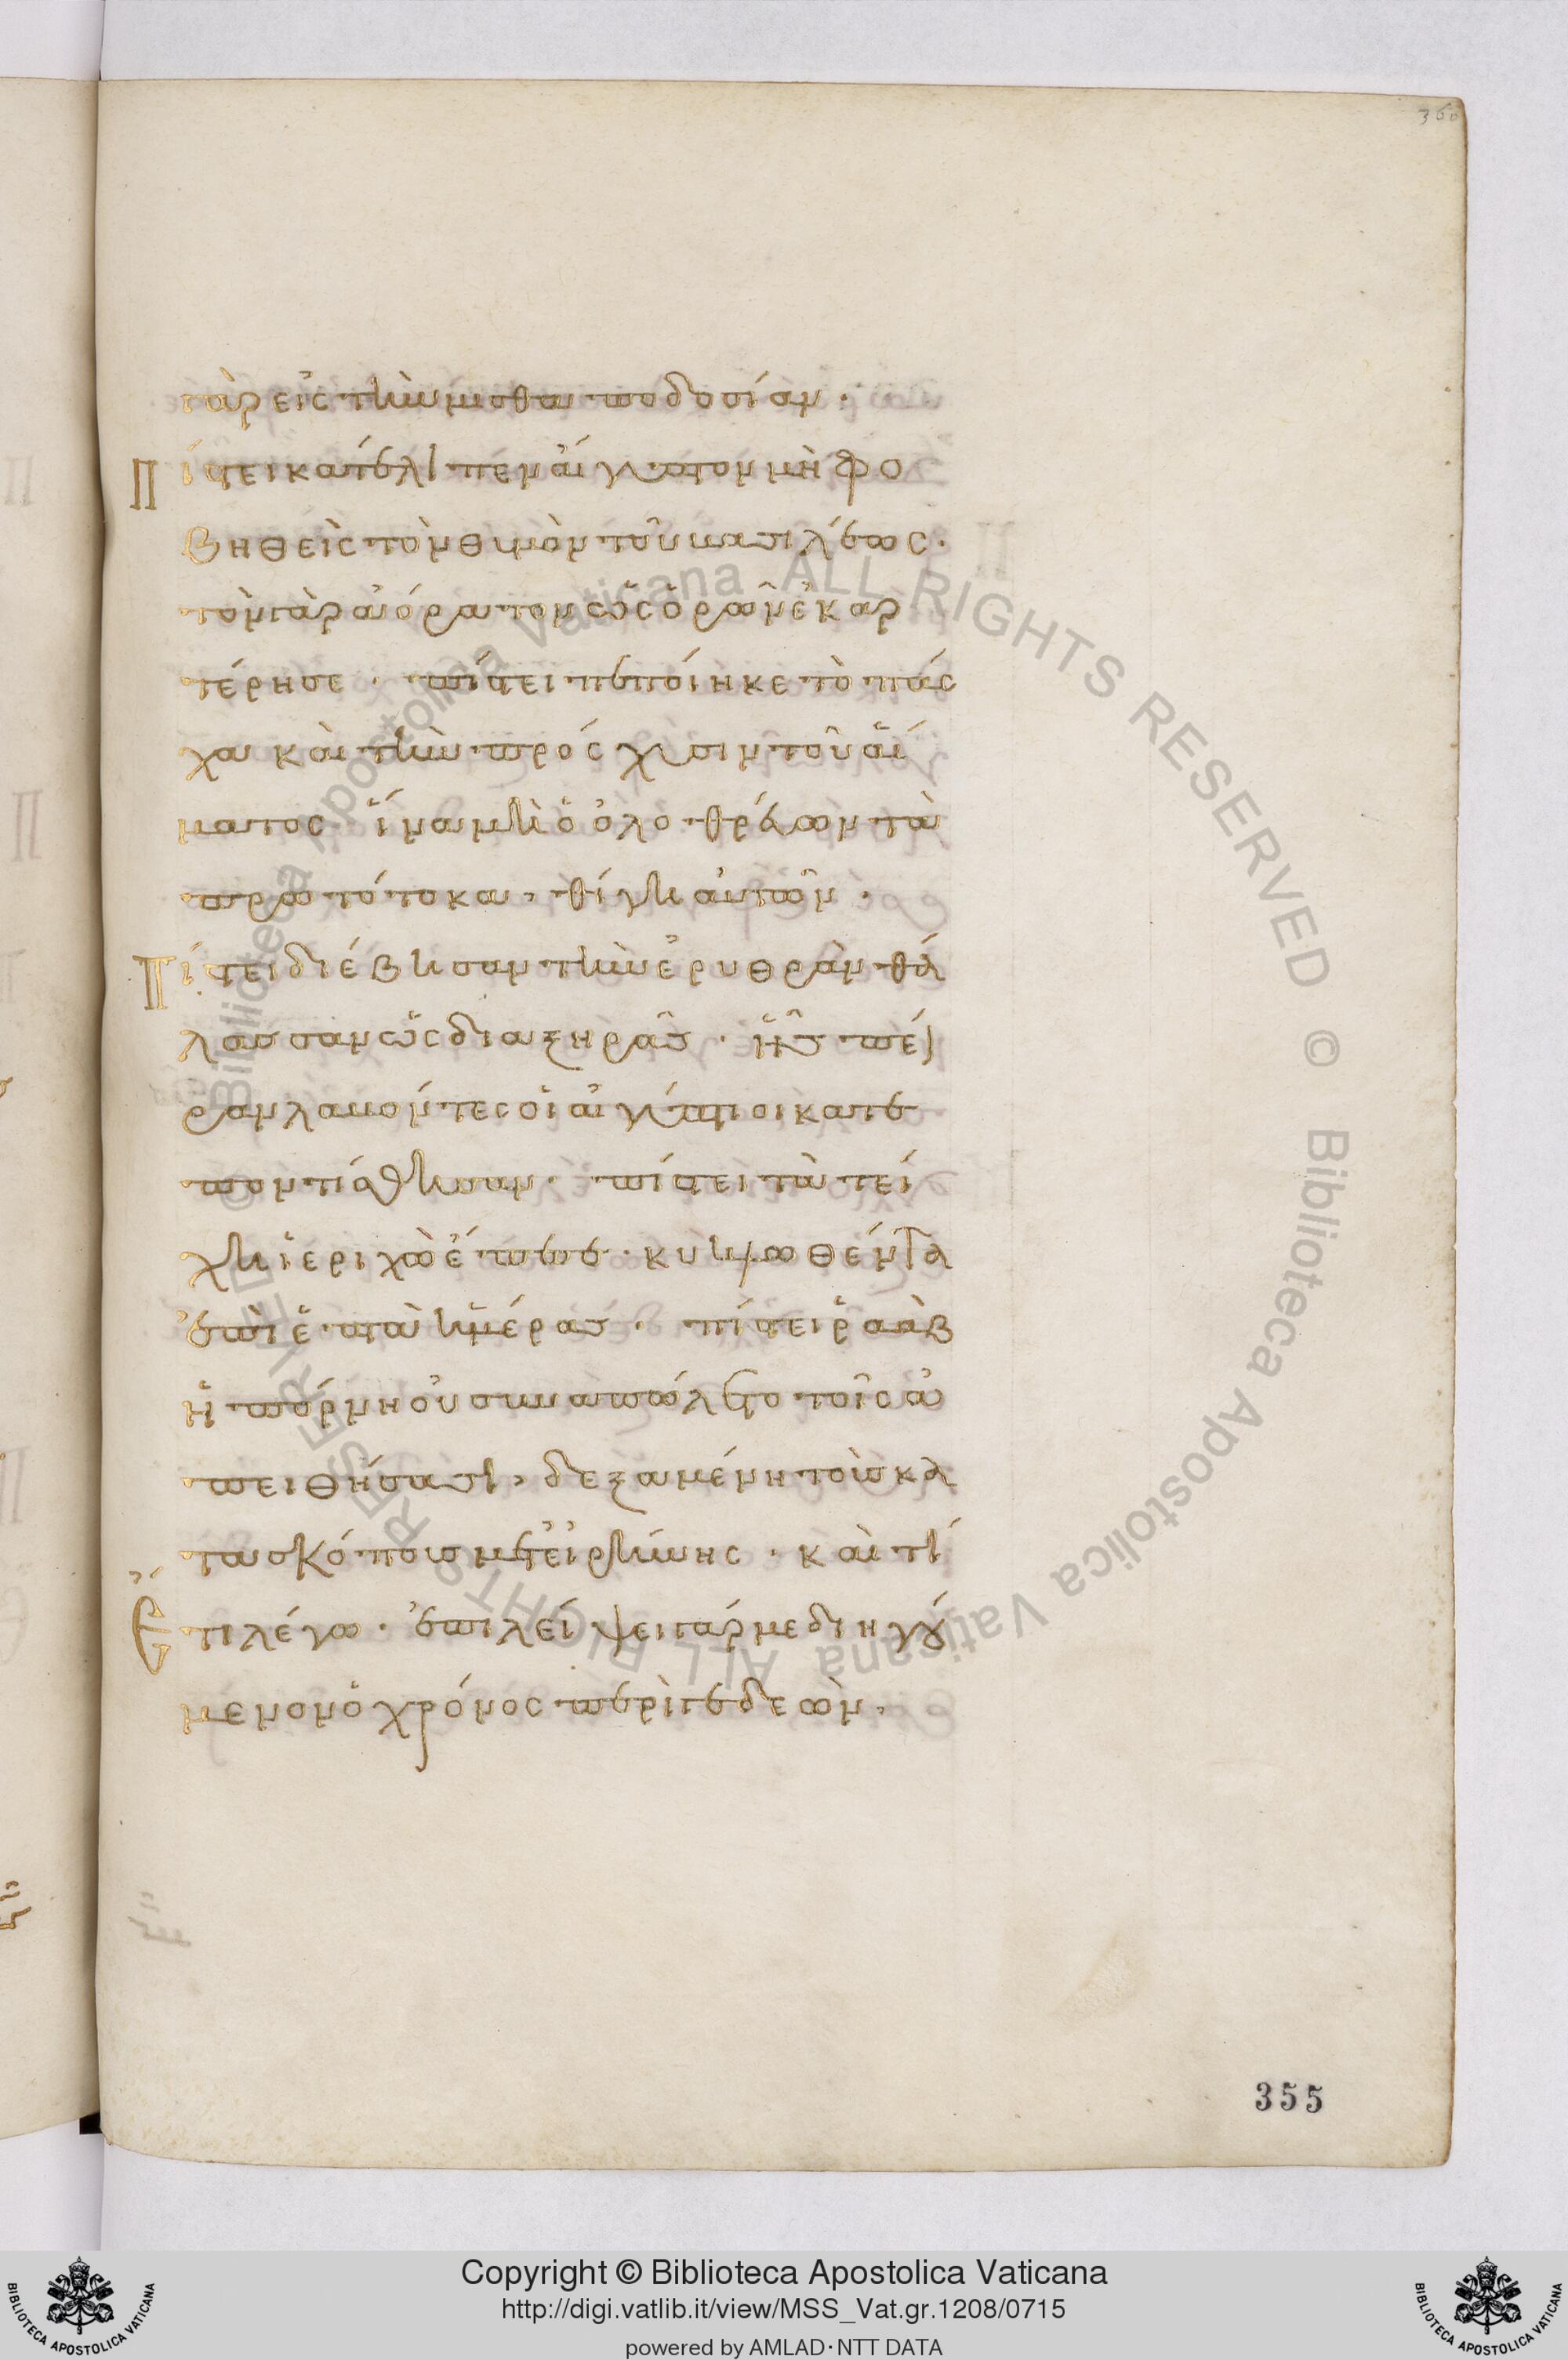 360
γὰρ εἰς τὴν μισθαποδοσίαν·
Πίστει κατέλιπεν αἴγυπτον μὴ φο
βηθεὶς τὸν θυμὸν τοῦ βασιλέως·
τὸν γὰρ ἀόρατον ὡς ὁρῶν ἐκαρ
τέρησε· πίστει πεποίηκε τὸ πάς
χα καὶ τὴν πρόσχυσιν τοῦ αἵ
ματος· ἵνα μὴ ὁ ὀλοθρεύων τὰ
πρωτότοκα, θίγη αὐτῶν·
Πίστει διέβησαν τὴν ἐρυθρὰν θά
λασσαν ὡς διὰ ξηρᾶς· ἧς πεῖ
ραν λαβόντες οἱ αἰγύπτιοι κατε
ποντίσθησαν· πίστει τὰ τεί
χη ἱεριχὼ ἔπεσε· κυκλωθέντα
ἐπὶ ἑπτὰ ἡμέρας· πίστει ῥαὰβ
ἡ πόρνη οὐ συναπώλετο τοῖς ἀ
πειθήσασι, δεξαμένη τοὺς κα
τασκόπους μετ' εἰρήνης· καὶ τί
Ἔτι λέγω· ἐπιλείψει γάρ με διηγού
μενον ὁ χρόνος περὶ γεδεὼν,
355
© Biblioteca Apostolica Vaticana ALL RIGHTS RESERVED © Biblioteca Apostolica Vaticana ALL RIGHTS RESERVED
Copyright © Biblioteca Apostolica Vaticana
http://digi.vatlib.it/view/MSS_Vat.gr.1208/0715
powered by AMLAD·NTT DATA
BIBLIOTECA APOSTOLICA VATICANA
BIBLIOTECA APOSTOLICA VATICANA